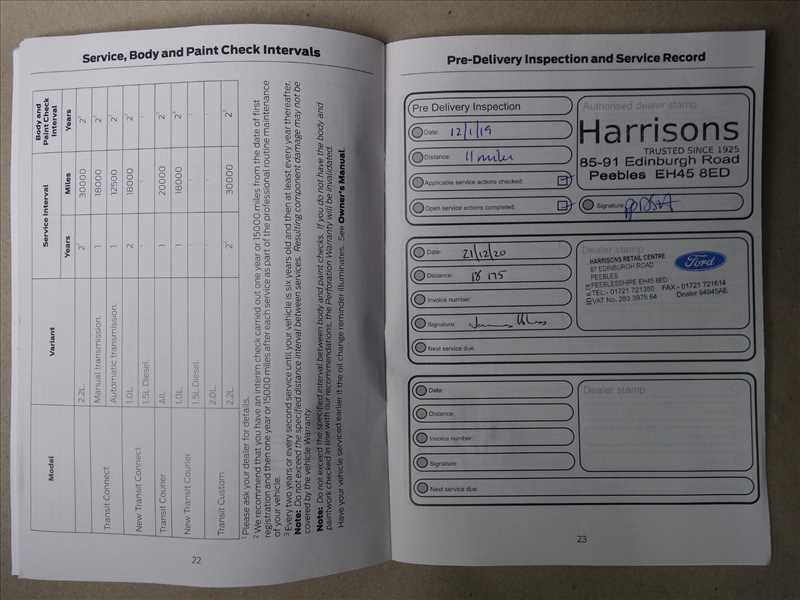 Service, Body and Paint Check Intervals
Model
Variant
Service Interval
Body and
Paint Check
Interval
Years
Miles
Years
2.2L.
2¹
30000
2³
Transit Connect
Manual transmission.
1
18000
2³
Automatic transmission.
1
12500
2³
New Transit Connect
1.0L.
2
18000
2³
1.5L Diesel.
Transit Courier
All.
1
20000
2³
New Transit Courier
1.0L.
1
18000
2³
1.5L Diesel.
Transit Custom
2.0L.
2.2L.
2²
30000
2³
¹ Please ask your dealer for details.
² We recommend that you have an interim check carried out one year or 15000 miles from the date of first
registration and then one year or 15000 miles after each service as part of the professional routine maintenance
of your vehicle.
³ Every two years or every second service until your vehicle is six years old and then at least every year thereafter.
Note: Do not exceed the specified distance interval between services. Resulting component damage may not be
covered by the vehicle Warranty.
Note: Do not exceed the specified interval between body and paint checks. If you do not have the body and
paintwork checked in line with our recommendations, the Perforation Warranty will be invalidated.
Have your vehicle serviced earlier if the oil change reminder illuminates. See Owner's Manual.
22
Pre-Delivery Inspection and Service Record
Pre Delivery Inspection
Date: 12/1/19
Distance: 11 miles
Applicable service actions checked:
Open service actions completed:
Authorised dealer stamp
Harrisons
TRUSTED SINCE 1925
85-91 Edinburgh Road
Peebles EH45 8ED
Signature:
Date: 21/12/20
Distance: 18 175
Invoice number:
Signature:
Next service due:
Dealer stamp
HARRISONS RETAIL CENTRE
87 EDINBURGH ROAD
PEEBLES
PEEBLESSHIRE EH45 8ED
TEL:- 01721 721350 FAX - 01721 721614
VAT No. 263 3975 64 Dealer 64945AE
Ford
Date:
Distance:
Invoice number:
Signature:
Next service due:
Dealer stamp
23